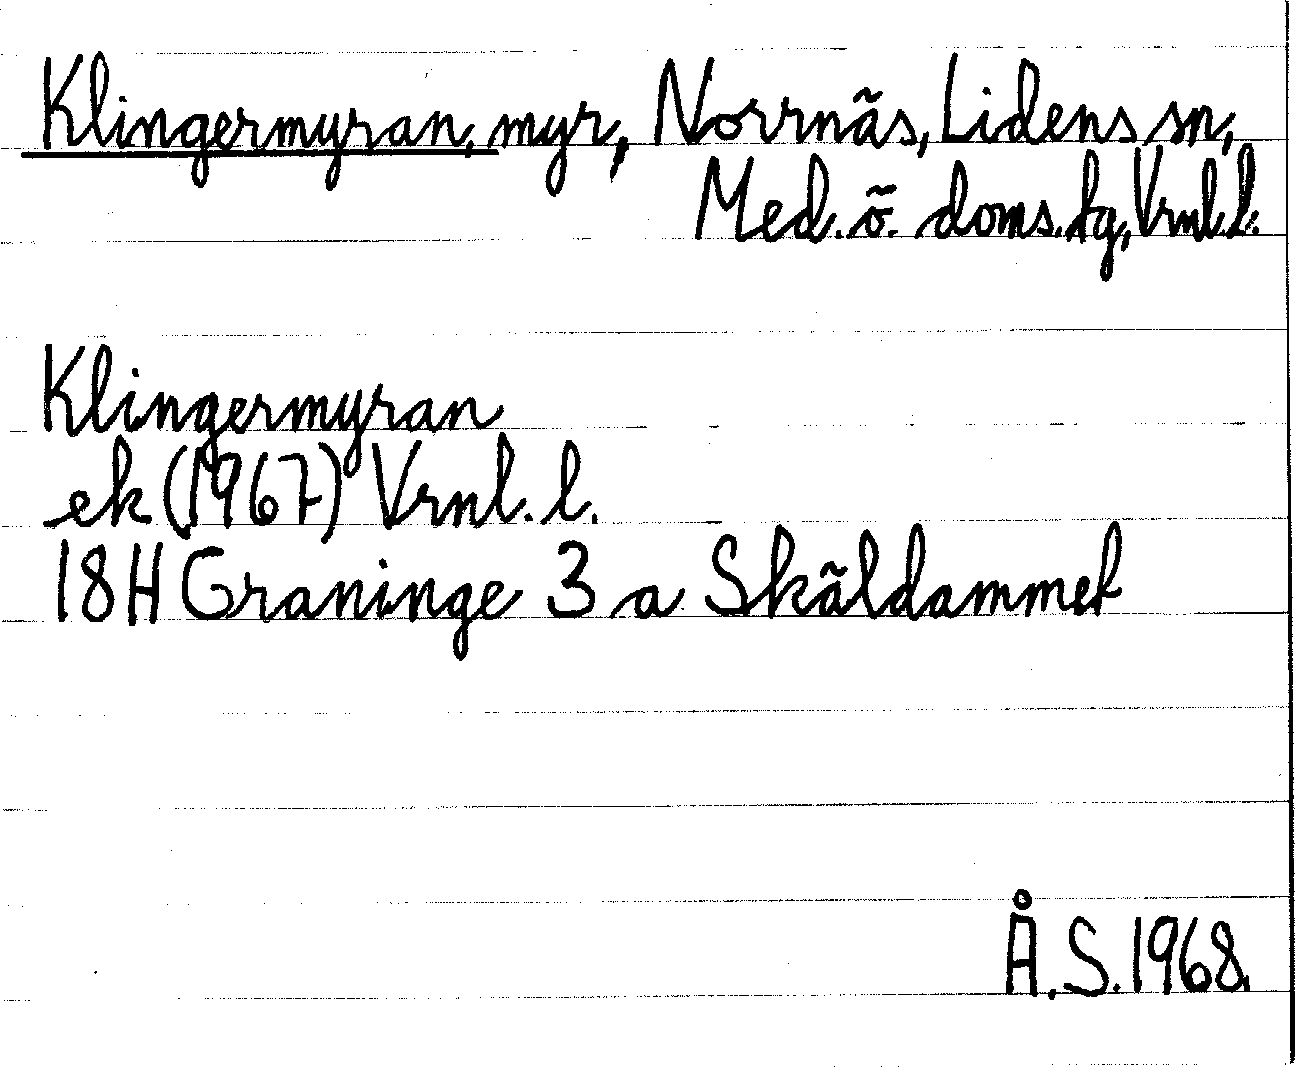 Klingermyran, myr, Norrnäs, Lidens sn,
Med. ö. doms. tg, Vrnl. l.
Klingermyran
ek (1967) Vrnl. l.
18H Graninge 3 a Skäldammet
Å. S. 1968.